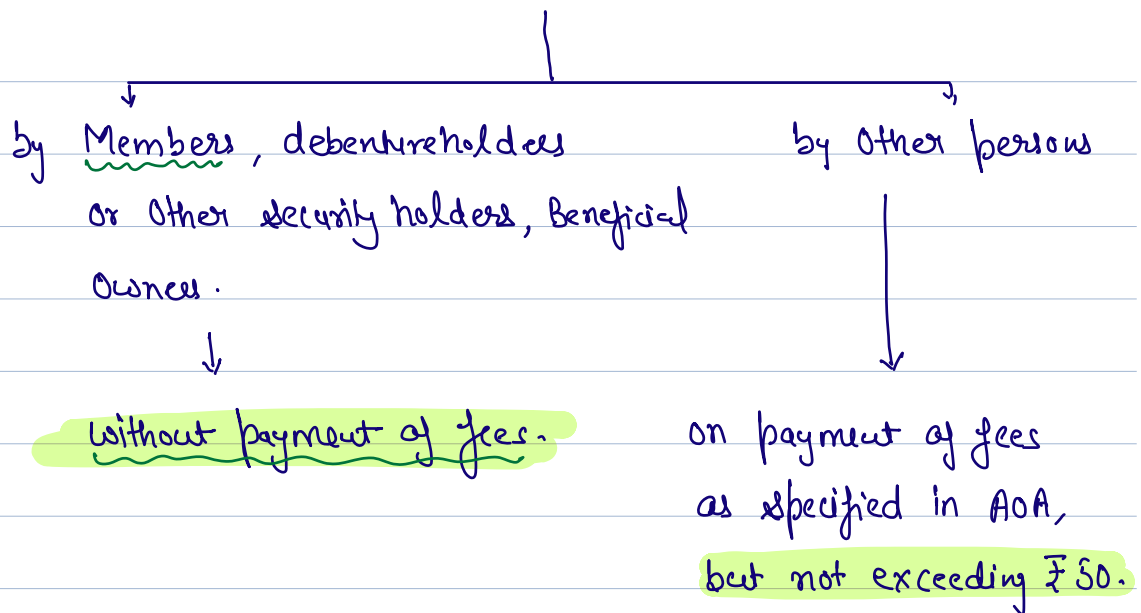 by Members, debentureholders
or Other security holders, Beneficial
Owners.
without payment of fees.
by Other persons
on payment of fees
as specified in AOA,
but not exceeding ₹50.